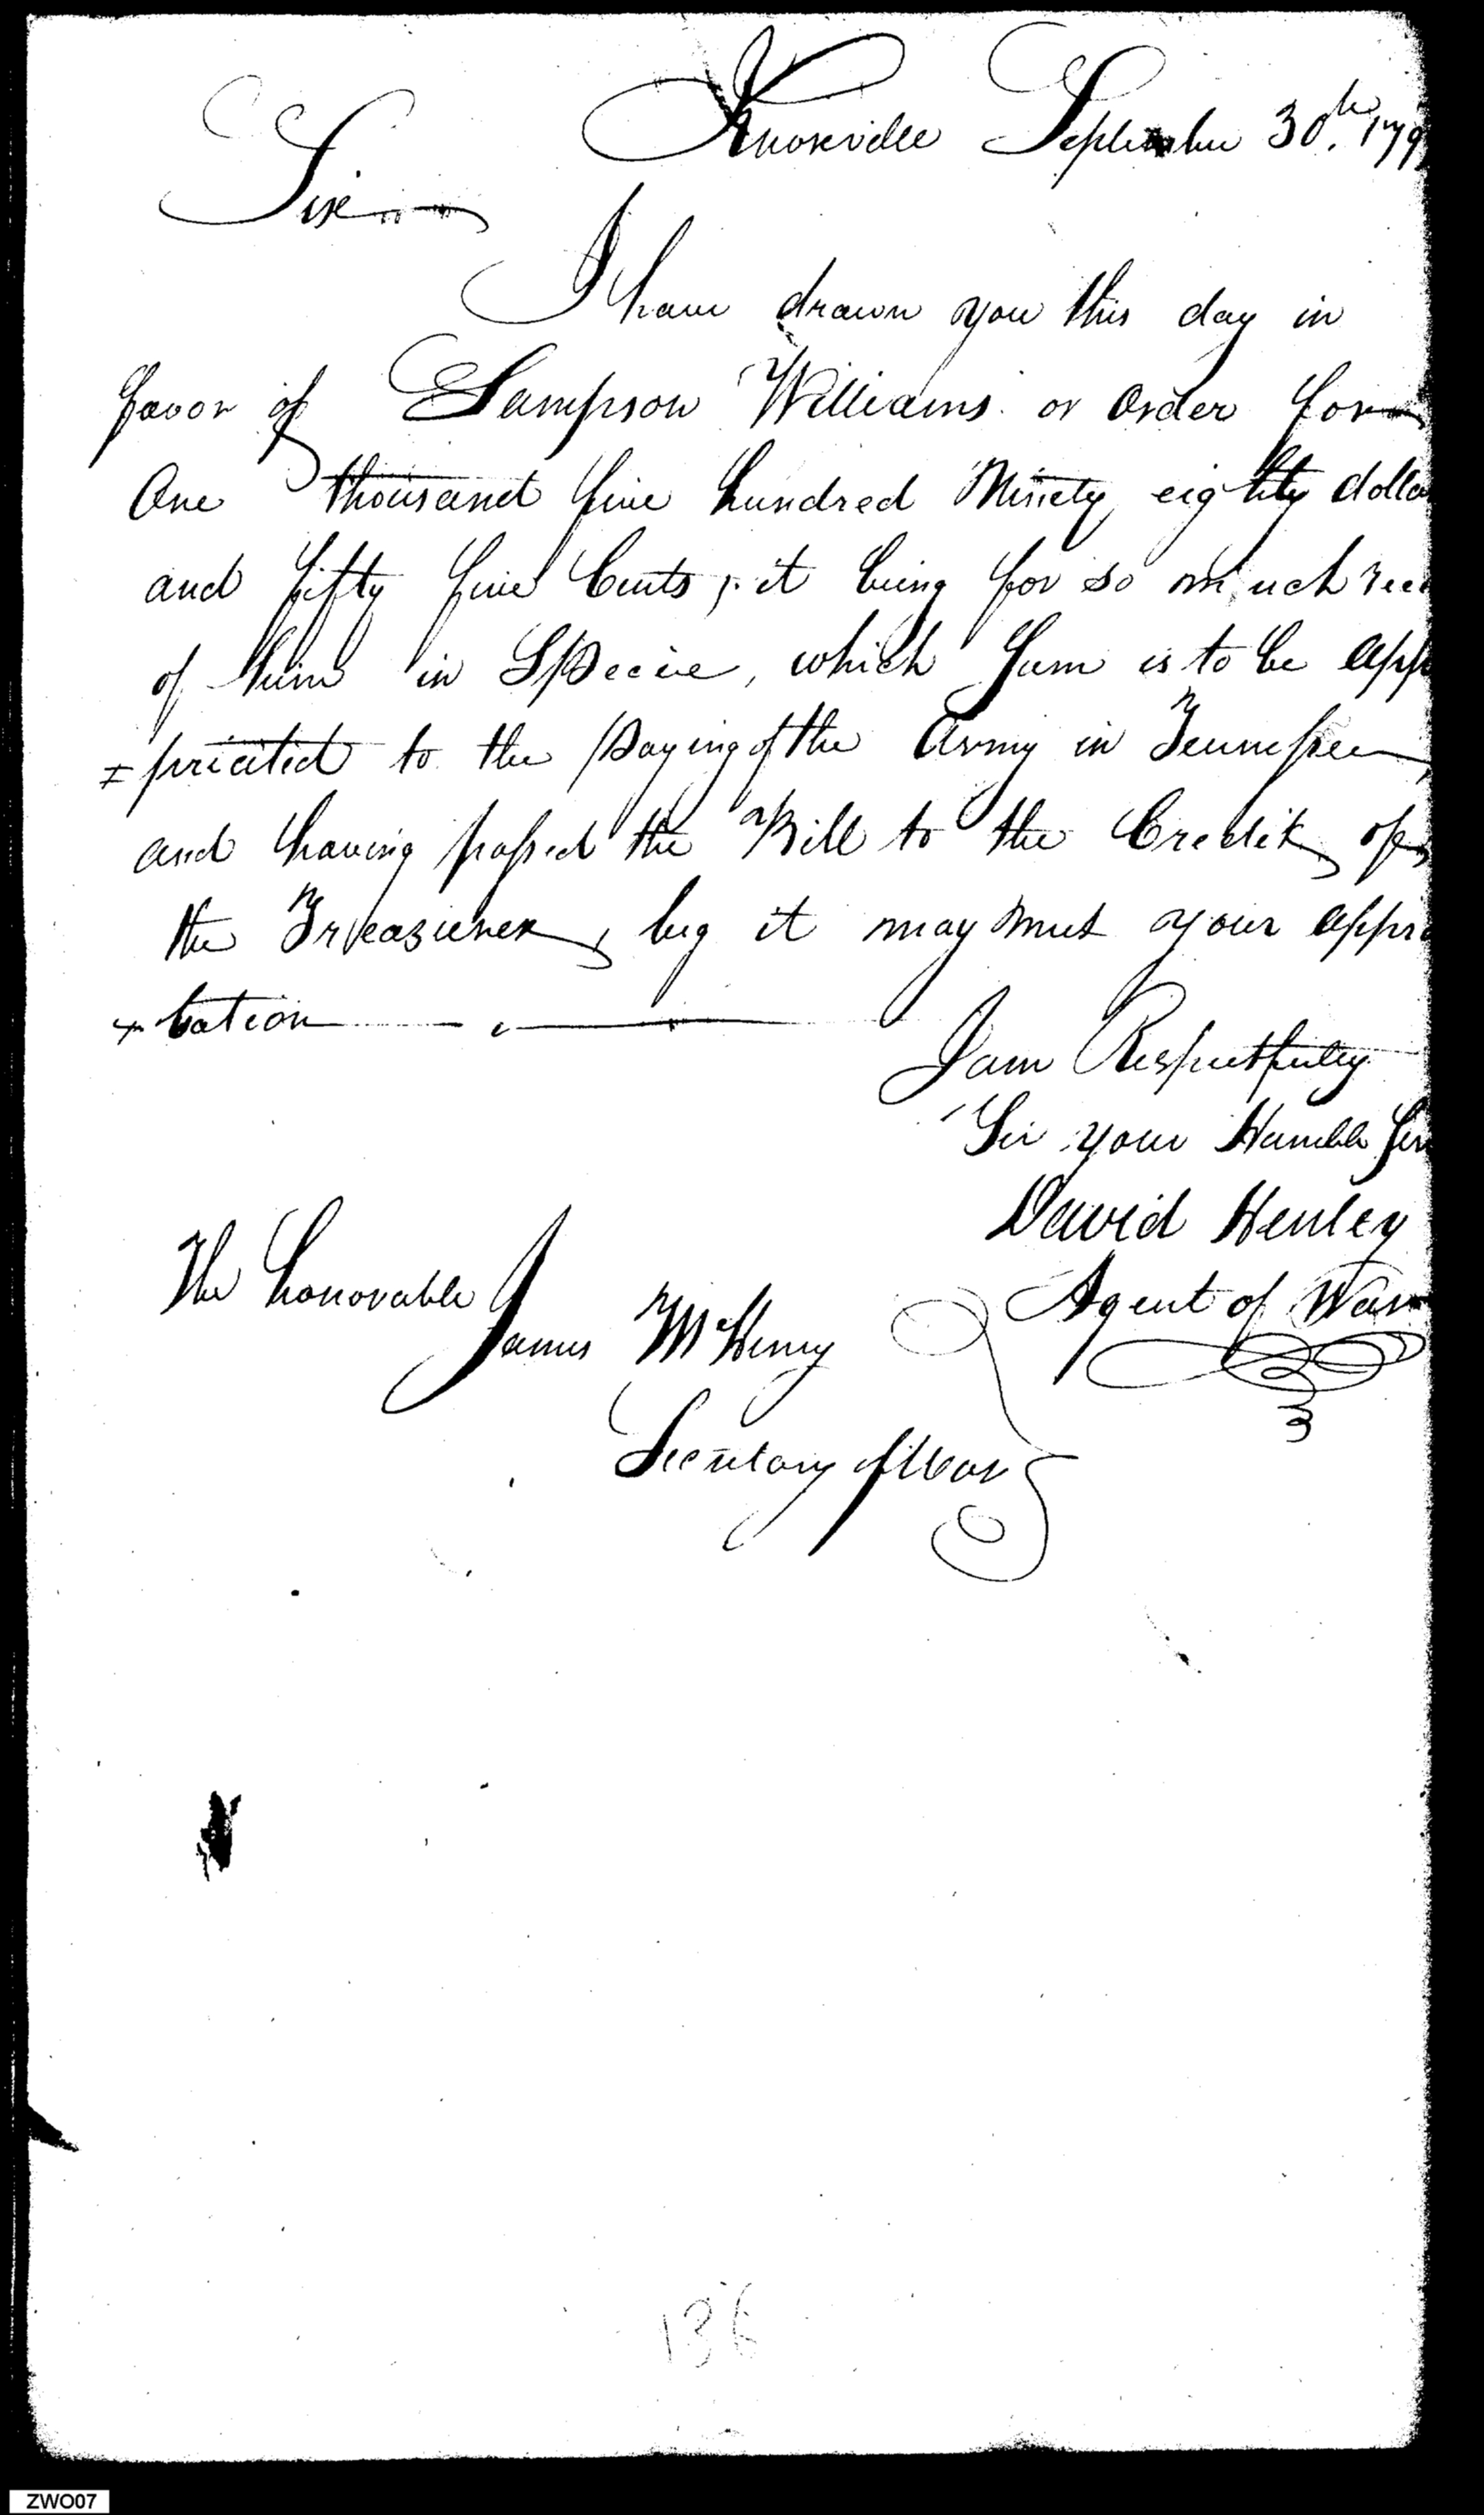 Knoxville September 30th. 179
Sir
I have drawn you this day in
favor of Sampson Williams or order for
One thousand five hundred Ninety eighty dolla
and fifty five Cents; it being for so much rec
of him in Specie, which Sum is to be app
=priated to the paying of the Army in Tennessee
and having passed the Bill to the Credit of
the Treasurer, beg it may meet your appro
=bation
I am Respectfully
Sir your Humble Ser
David Henley
Agent of War
The honorable
James McHenry
Secretary of War
136
ZWO07